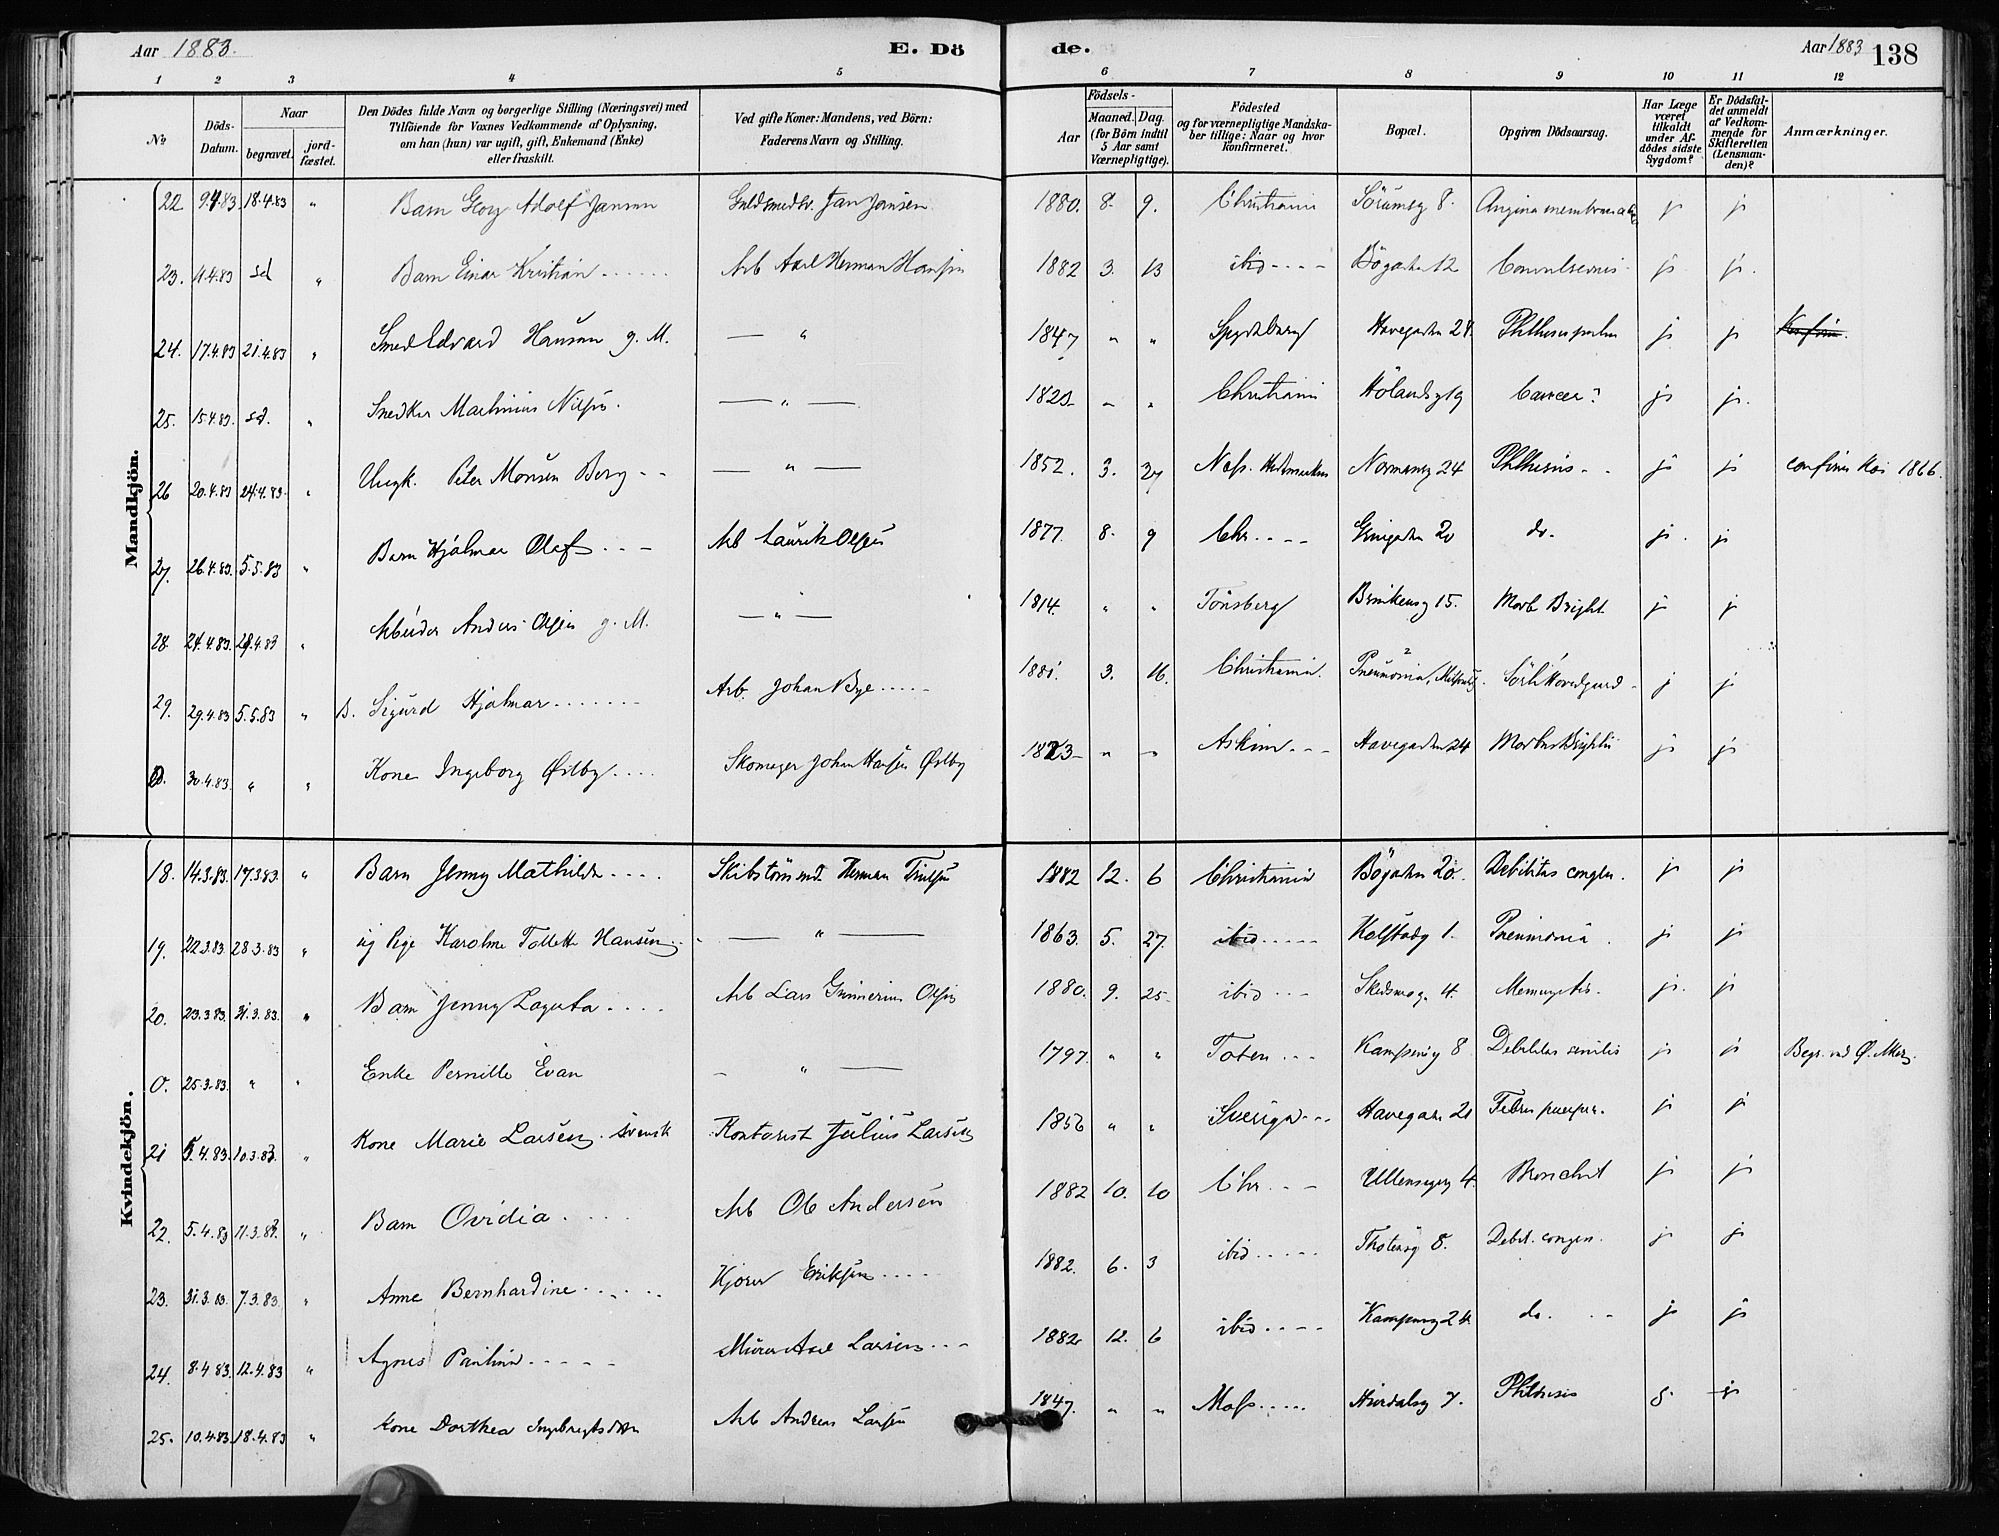 Aar 1883. E. Dö de. Aar 1883 138
1 2 3 4 5 6 7 8 9 10 11 12
No Döds-Datum. Naar begravet. jord-fæstet. Den Dödes fulde Navn og borgerlige Stilling (Næringsvei) med Tilföiende for Voxnes Vedkommende af Oplysning, om han (hun) var ugift, gift, Enkemand (Enke) eller fraskilt. Ved gifte Koner: Mandens, ved Börn: Faderens Navn og Stilling. Födsels- Aar Maaned. Dag. (for Börn indtil 5 Aar samt Værnepligtige). Födested og for værnepligtige Mandskaber tillige: Naar og hvor konfirmeret. Bopæl. Opgiven Dödsaarsag. Har Læge været tilkaldt under Afdödes sidste Sygdom? Er Dödsfaldet anmeldt af Vedkommende for Skifteretten (Lensmanden)? Anmærkninger.
Mandkjön.
22 9.4.83. 18.4.83 " Barn Georg Adolf Jansen Guldsmedsv. Jan Jansen 1880. 8. 9. Christiania Sörumsg 8. Angina membranacea j j
23. 11.4.83 sd " Barn Einar Kristian Arb Axel Herman Hansen 1882 3. 13 ibid Bögaden 12 Convulsiones j j.
24. 17.4.83 21.4.83 " Smed Edvard Hansen g. M. " 1847 " " Spydeberg Havegaden 24. Phthisis pulm j j
25. 15.4.83. sd. " Snedker Martinius Nilsen. " " " Christiania Hölandsg 19 Cancer? j j.
26 20.4.83 24.4.83. " Ungk. Peter Monsen Berg " 1852. 3. 27 Næs. Hedemarken Normannsg 24 Phthisis j j 1866.
27. 26.4.83. 5.5.83 " Barn Hjalmar Olaf Arb Laurits Olsen 1877. 8. 9 Chr. 20 do. j. j
28. 24.4.83. 29.4.83 " Arbeider Anders Olsen g. M. " 1814. " " Tönsberg 15. Morb Bright j j
29. 29.4.83 5.5.83 " B. Sigurd Hjalmar Arb. Johan Bye 1881. 3. 16. Christiania. Pneumonia, Sörli Hovedgaard j j
0. 30.4.83. " " Kone Ingeborg Østby Skomager Johan Hansen Østby 1823 " " Askim Havegaden 24 Morbus Brightii j j
Kvindekjön.
18. 14.3.83. 17.3.83. " Barn Jenny Mathilde Skibstömmd. Herman 1882 12. 6 Christiania Bögaden 20. Debilitas congen. j j
19. 22.3.83 28.3.83 " ug Pige Karoline Tollette Hansen " 1863. 5. 27. ibid Kolstadg 1. Pneumonia. j j
20. 23.3.83. 31.3.83. " Barn Jenny Arb Lars Gunnerius Olsen 1880. 9. 25 ibid 4. j. j
0. 25.3.83. " " Enke Pernille Evan " 1797. " " Toten Kampeng 8 Debilitas senilis j j Begr. ved Ø. Aker.
21 5.4.83. 10.3.83. " Kone Marie Larsen. svensk Kontorist Julius Larsen 1856 " " Sverige Havegaden Febris puerper. j j
22. 5.4.83 11.3.83. " Barn Ovidia Arb Ole Andersen 1882 10. 10 Chr. Ullensagerg 4. Bronchit j j
23. 31.3.83. 7.3.83. " Anne Bernhardine Kjörer Eriksen 1882. 6. 3 ibid 8. Debil. congen. j j
24. 8.4.83. 12.4.83 " Agnes Pauline Murer Axel Larsen 1882 12. 6 ibid Kampeng 24. do. j j
25. 10.4.83. 18.4.83 " Kone Dorthea Ingebregtsdttr Arb Andreas Larsen 1847. " " Moss Hurdalsg 7. Phthisis j j